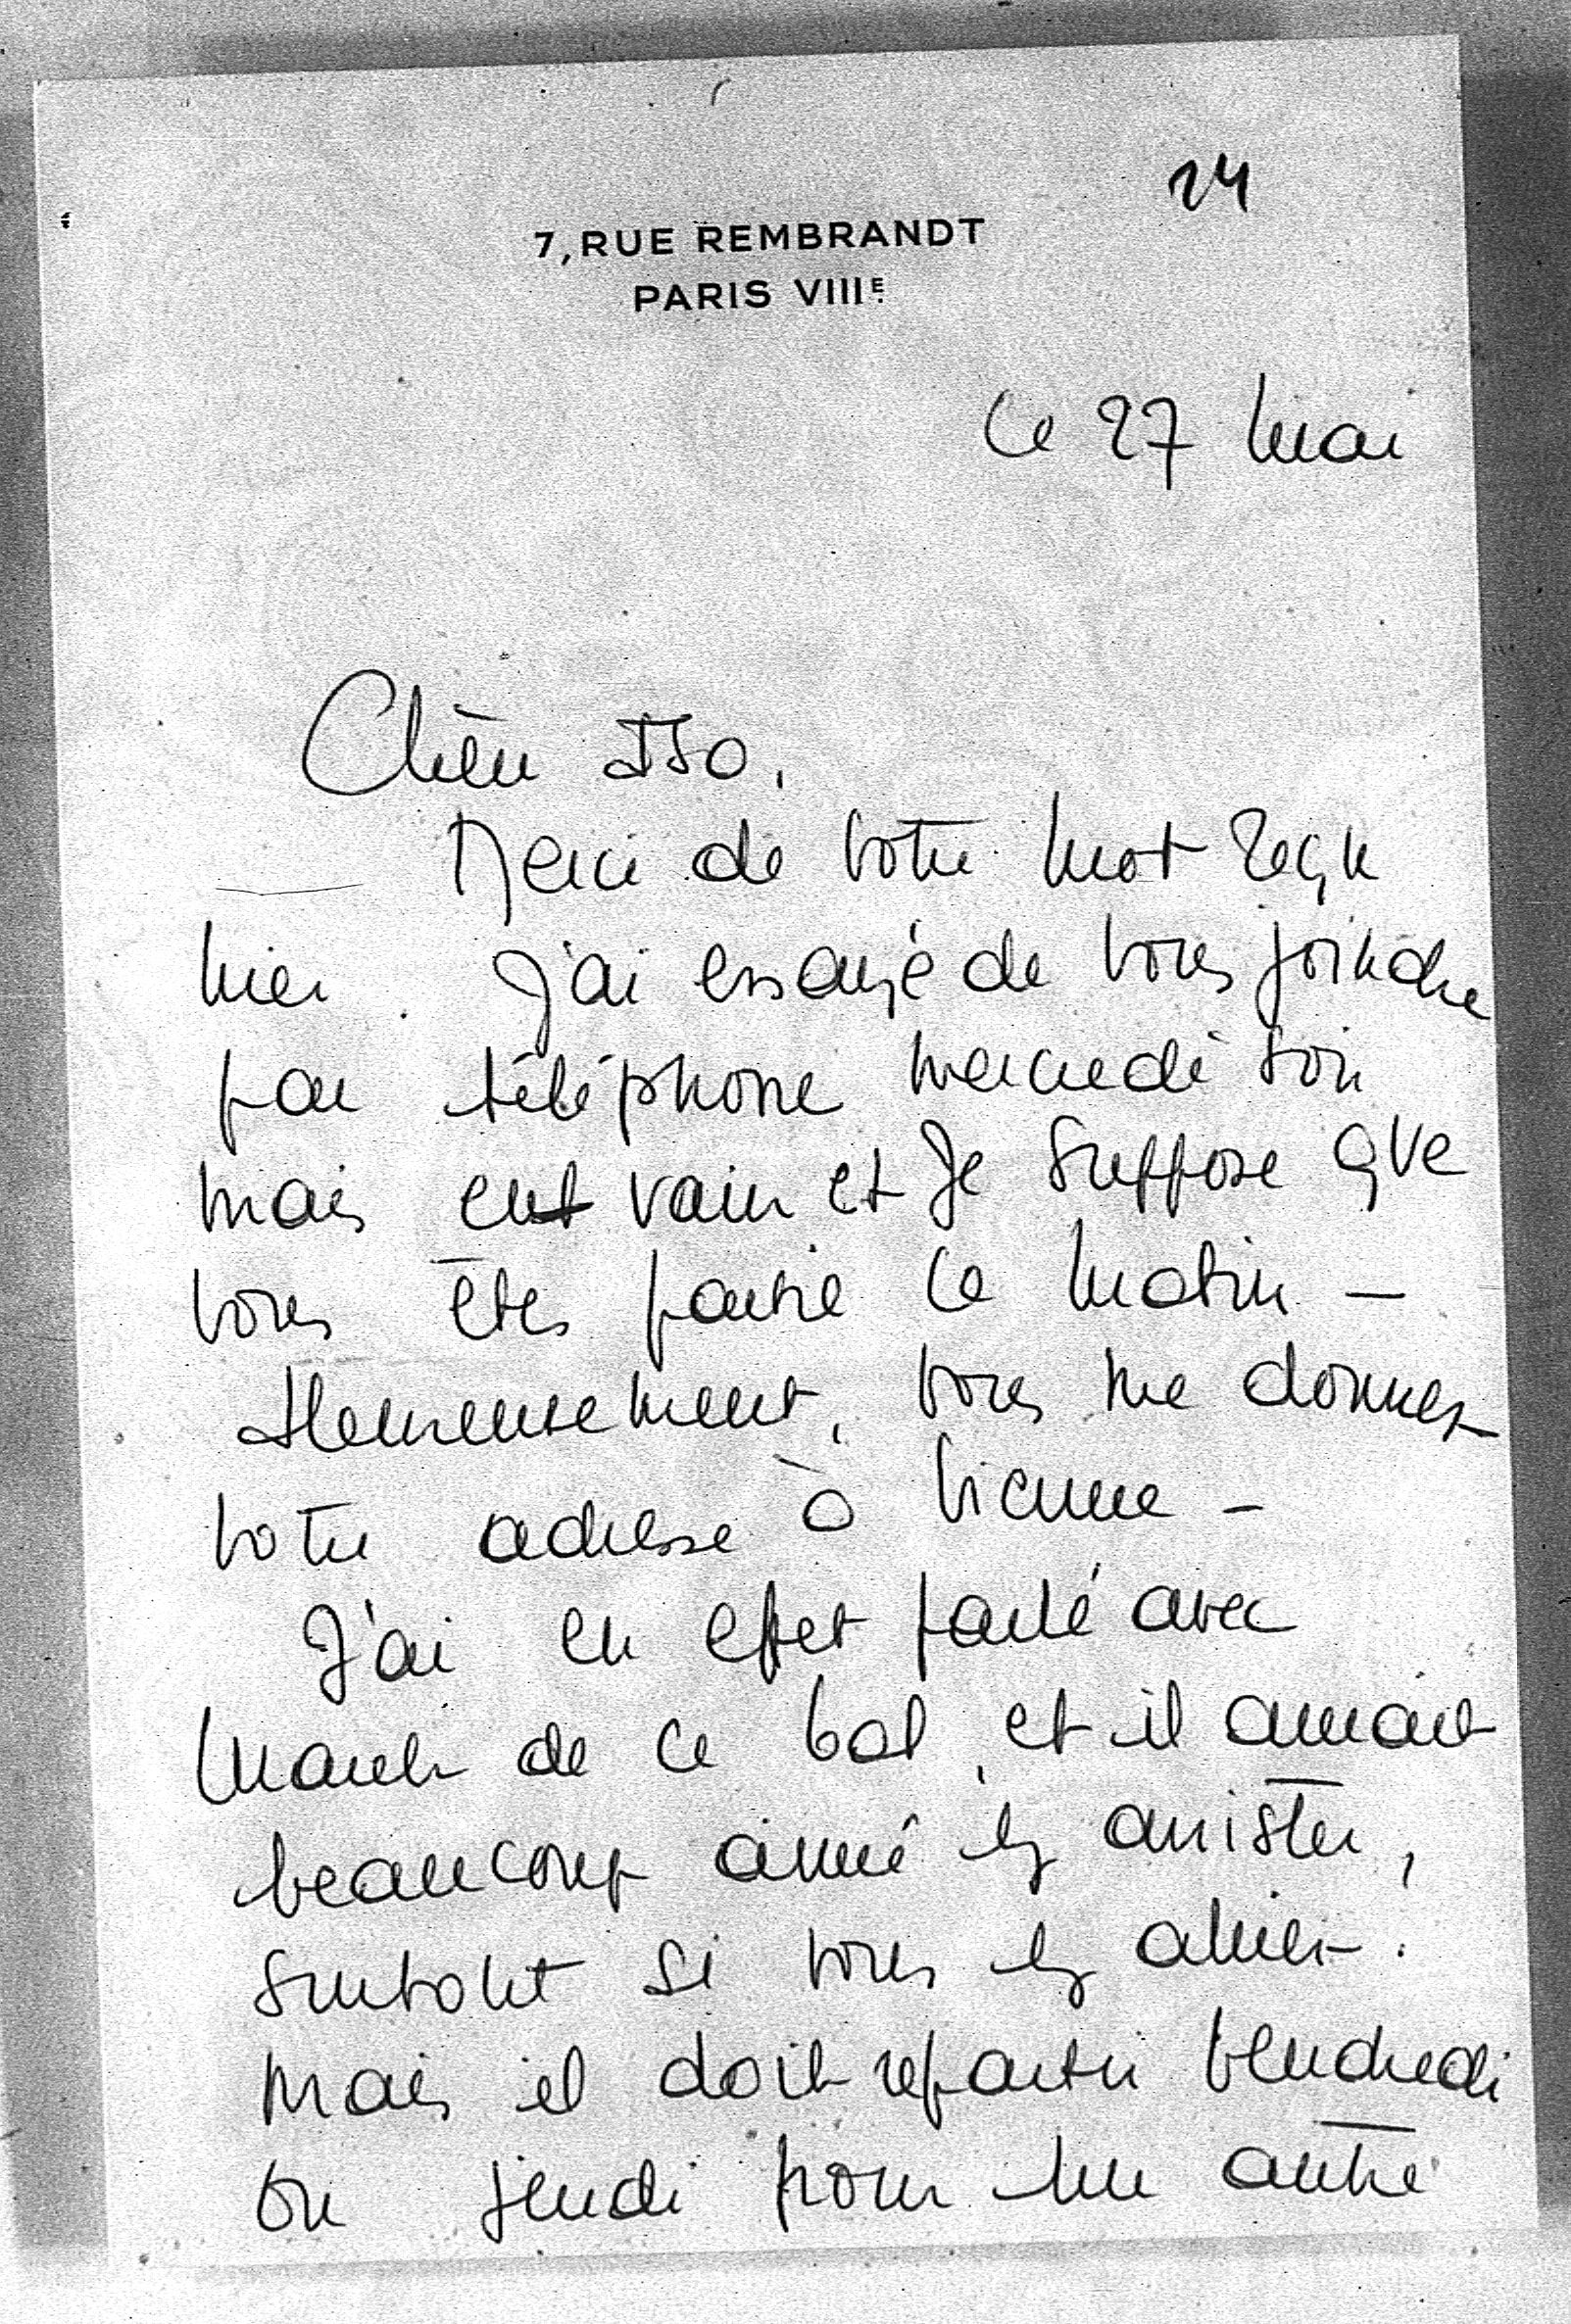 24
7, RUE REMBRANDT
PARIS VIIIE.
Le 27 mai
Chère Iso,
Merci de votre mot reçu
hier. J'ai essayé de vous joindre
par téléphone mercredi soir
mais en vain et je suppose que
vous êtes partie ce matin -
Heureusement, vous me donnez
votre adresse à Vienne -
J'ai en effet parlé avec
de ce bal, et il aurait
beaucoup aimé y assister,
surtout si vous y alliez.
Mais il doit repartir vendredi
ou jeudi pour un autre